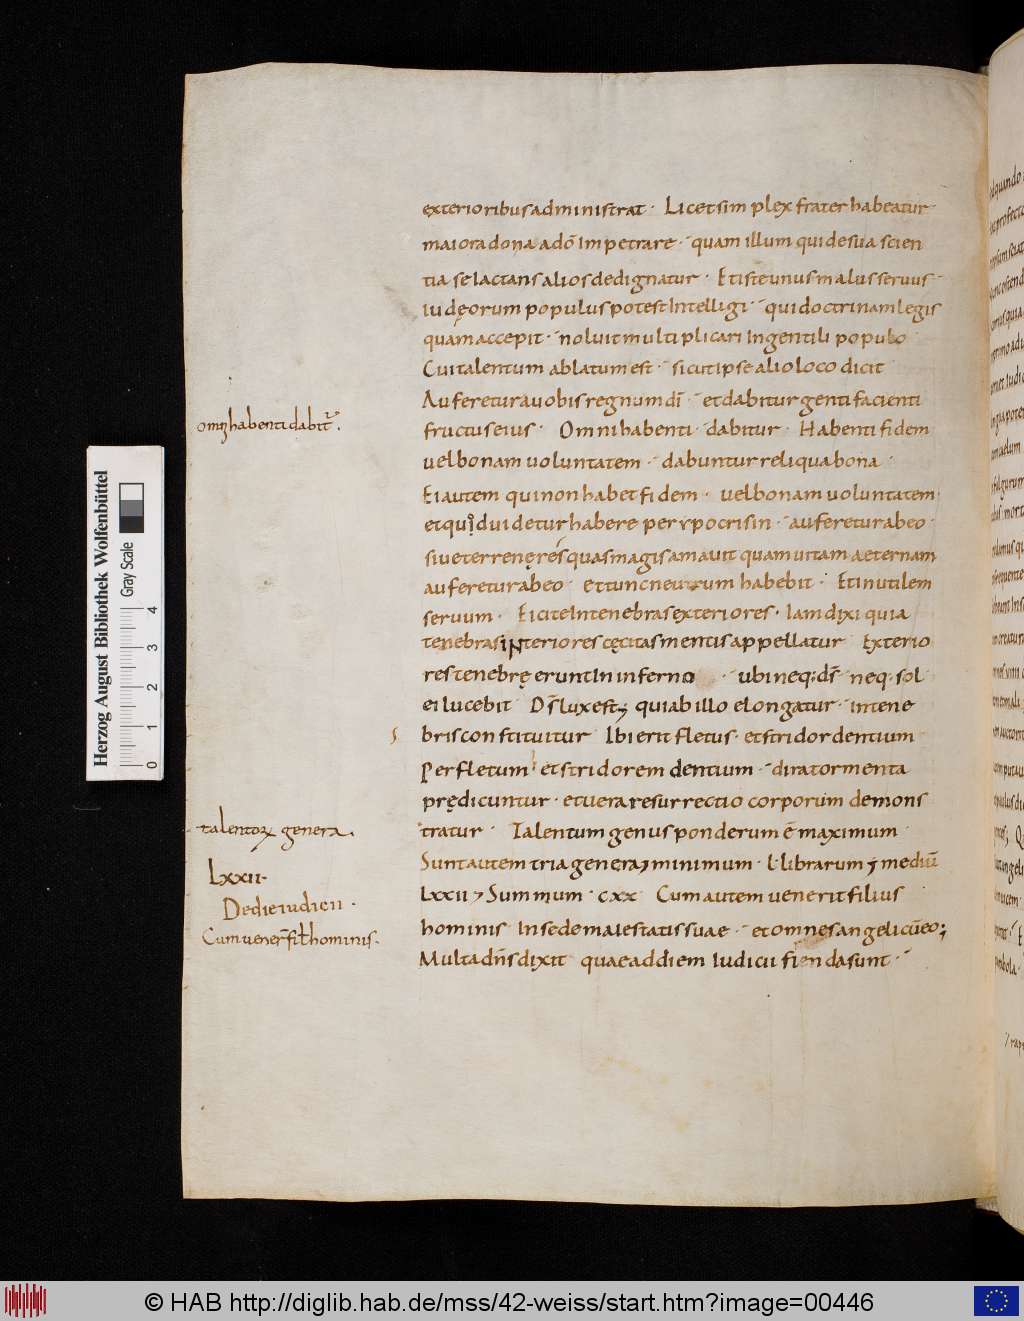 exterioribus administrat · Licet simplex frater habeatur
maiora dona a dõ Impetrare · quam illum qui de sua scien
tia se lactans alios dedignatur · Et iste unus malus seruus
iudęorum populus potest Intelligi · qui doctrinam legis
quam accepit · noluit multiplicari In gentili populo
Cui talentum ablatum est · sicut ipse alio loco dicit
Auferetur a uobis regnum dī · et dabitur genti facienti
omĩ habenti dabit̃ .
fructus eius · Omni habenti · dabitur · Habenti fidem
uel bonam uoluntatem · dabuntur reliqua bona ·
Ei autem qui non habet fidem · uel bonam uoluntatem
et quod uidetur habere per ypocrisin · auferetur ab eo ·
siue terrenę res quas magis amauit quam uitam aeternam
auferetur ab eo et tunc neutrum habebit · Et inutilem
seruum · Eicite In tenebras exteriores · Iam dixi quia
tenebras interiores cęcitas mentis appellatur Exterio
res tenebrę erunt In inferno · ubi neq; dš neq· sol
ei lucebit Dš lux est ⁊ qui ab illo elongatur · in tene
bris constituitur Ibi erit fletus · et stridor dentium
Per fletum et stridorem dentium · dira tormenta
prędicuntur · et uera resurrectio corporum demons
talentoꝝ genera .
tratur · Talentum genus ponderum ē maximum
Sunt autem tria genera ⁊ minimum · L · librarum ⁊ mediū
Lxxii·
Lxxii ⁊ Summum · cxx Cum autem uenerit filius
De die iudicii ·
hominis In sede maiestatis suae · et omnes angeli cū eo;
Cum uener̃ fił hominis .
Multa dñs dixit quae ad diem Iudicii fienda sunt ·
Herzog August Bibliothek Wolfenbüttel
Gray Scale
0 1 2 3 4
© HAB http://diglib.hab.de/mss/42-weiss/start.htm?image=00446